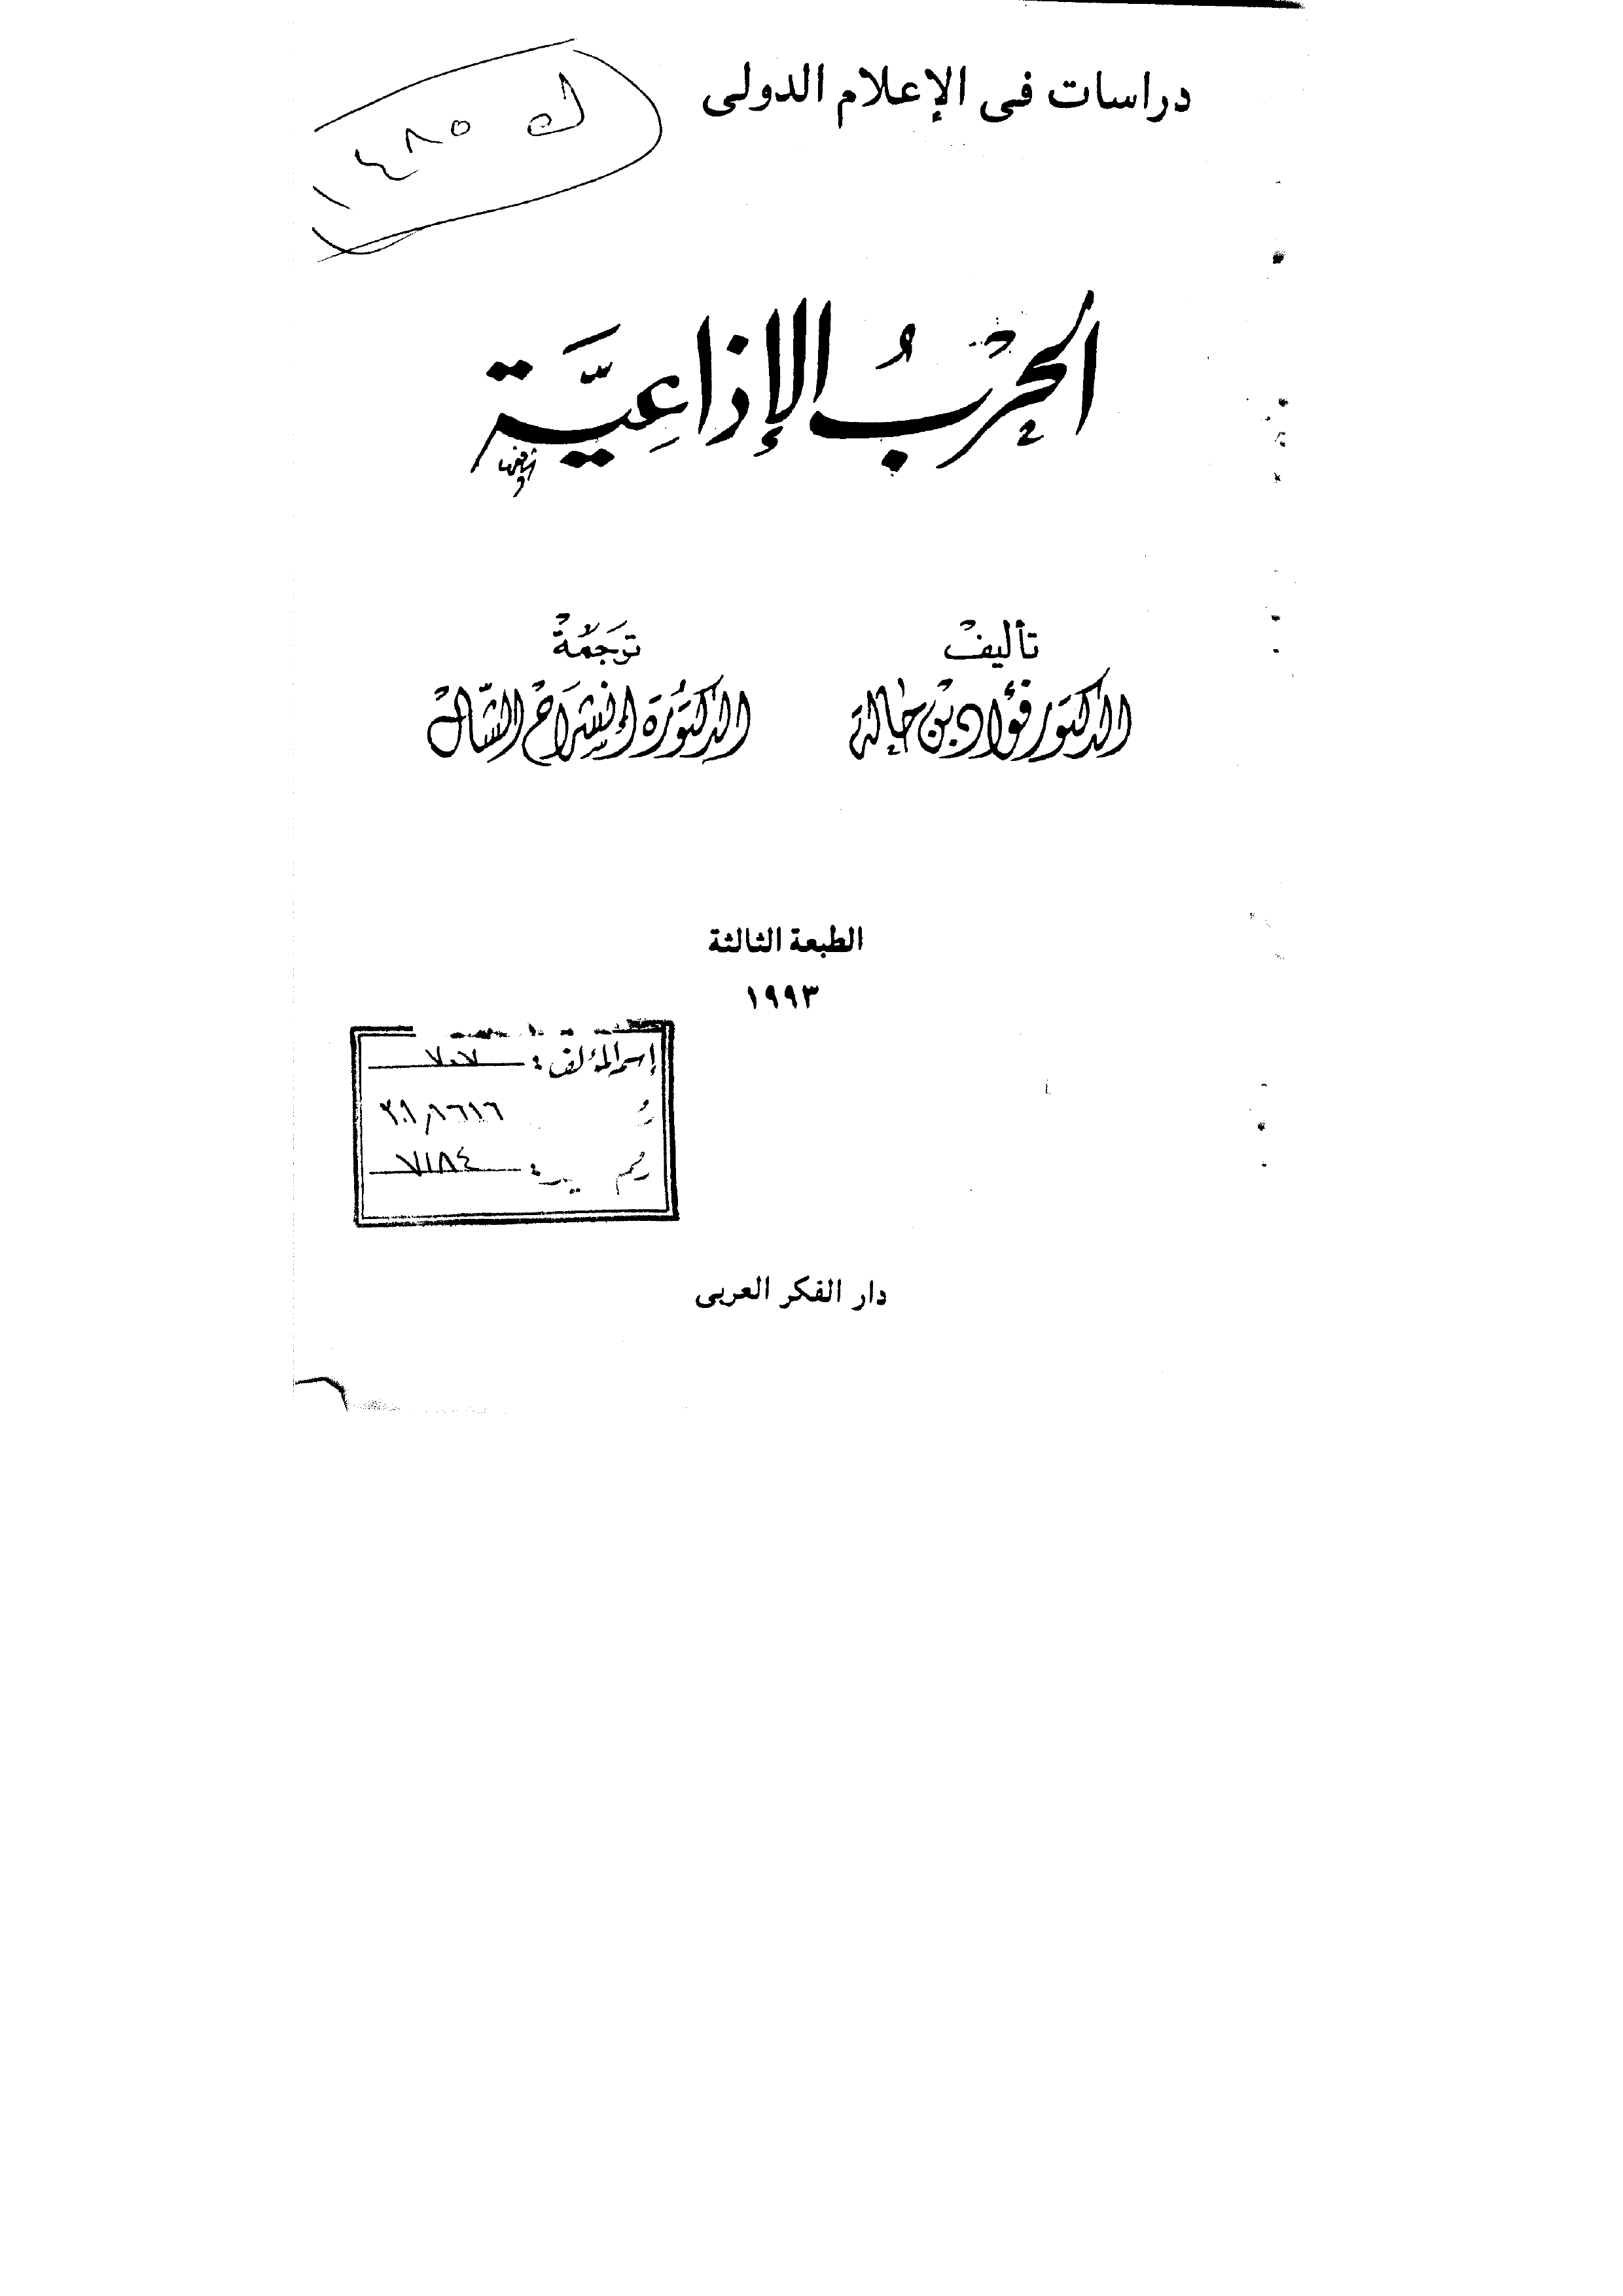 دراسات فى الإعلام الدولى
ك ٤٨٥
الحَرْبُ الإذاعِيَّة
تأليف
الدكتور فؤاد بن حالة
ترجَمَة
الدكتورة إنشراح الشال
الطبعة الثالثة
١٩٩٣
إسم المؤلف : ٧٠٧
٧١٨٤
دار الفكر العربى